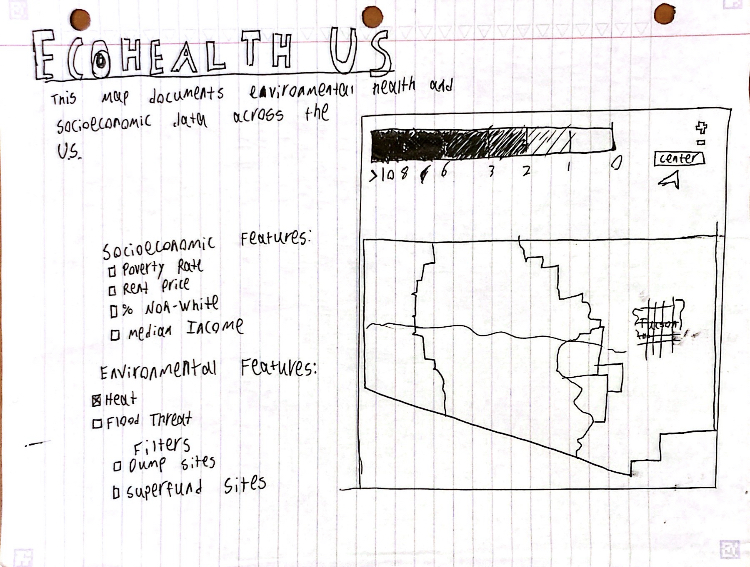 ECOHEALTH US
This map documents environmental health and
socioeconomic data across the
U.S.
>10 8 6 3 2 1 0
+
-
center
Socioeconomic Features:
Poverty Rate
Rent Price
% Non-White
median Income
Environmental Features:
Heat
Flood Threat
Filters
Dump sites
Superfund Sites
Tucson